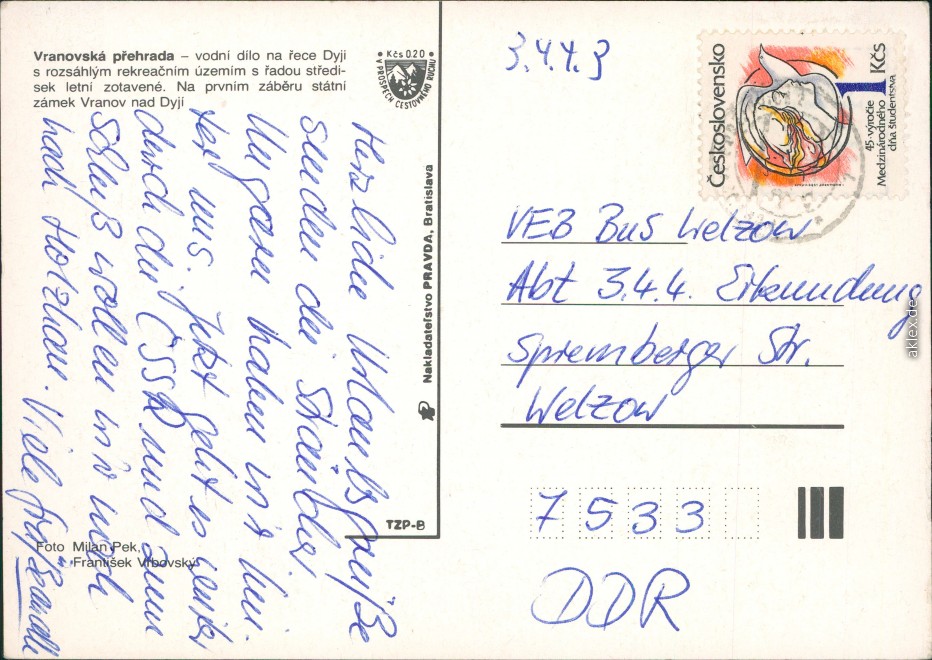 Vranovská přehrada – vodní dílo na řece Dyji
s rozsáhlým rekreačním územím s řadou středi-
sek letní zotavené. Na prvním záběru státní
zámek Vranov nad Dyjí
• Kčs 0.20 •
V PROSPĚCH CESTOVNÉHO RUCHU
Herzliche Urlaubsgrüße
senden die Sträubler.
Ungarn haben wir hin-
ter uns. Jetzt geht es
durch die ČSSR und zum
Schluß wollen wir noch
nach Holzhau. Viele Grüße
Nakladateľstvo PRAVDA, Bratislava
TZP-B
Foto Milan Pek,
František Vrbovský
3.4.4.3
Československo
1 Kčs
45. výročie
Medzinárodného
dňa študentstva
VEB BuS Welzow
Abt 3.4.4. Erkundung
Spremberger Str.
Welzow
7533
DDR
aklex.de